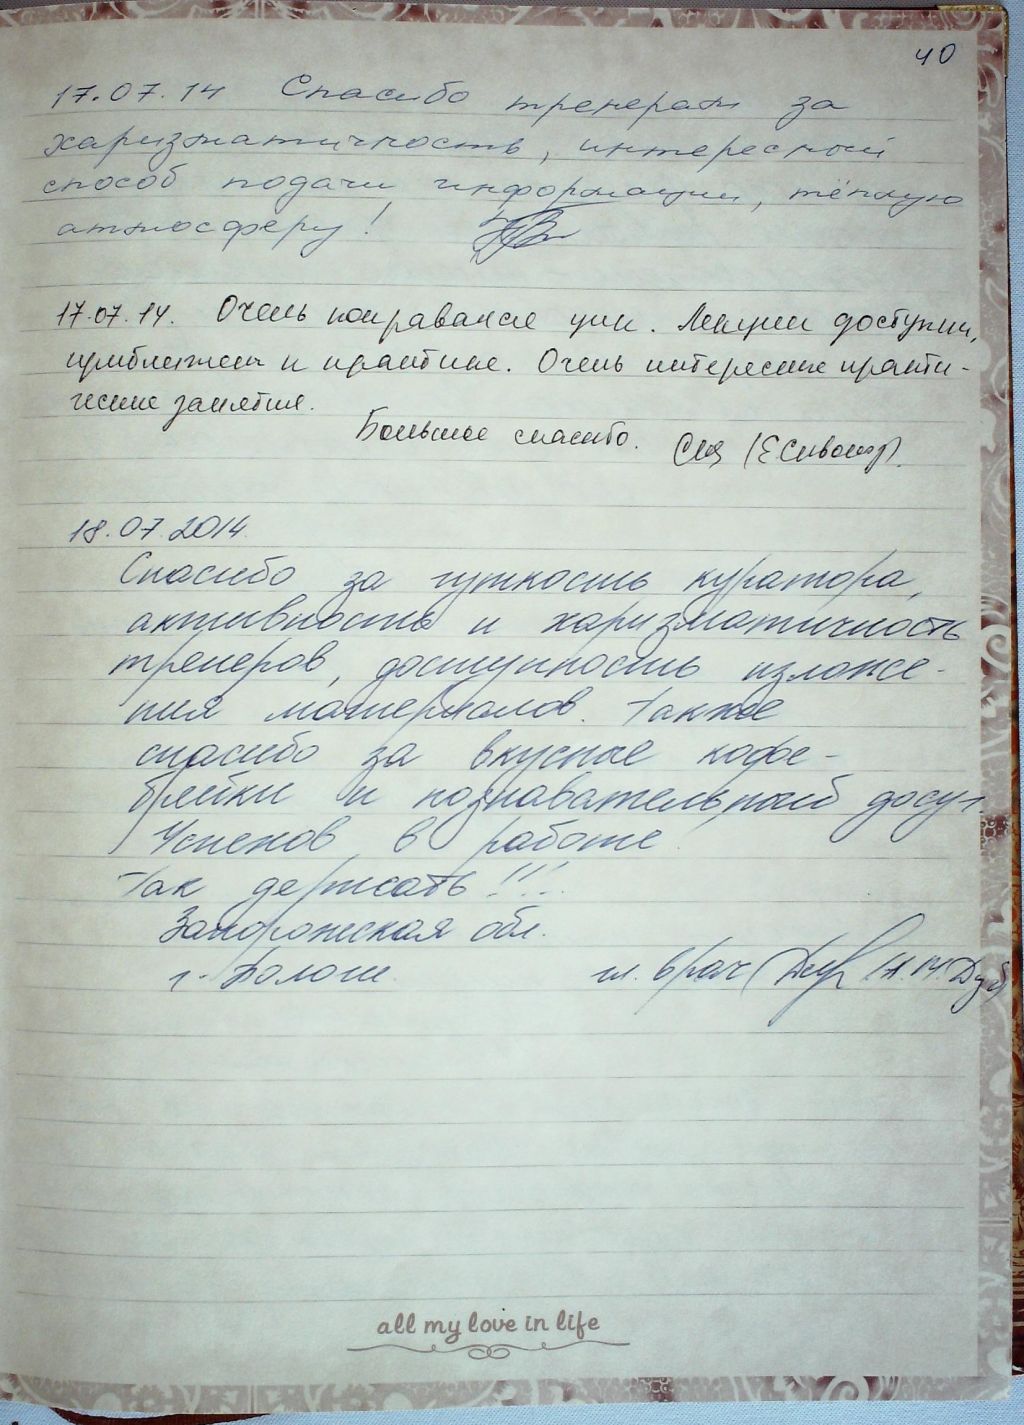 40
17.07.14 Спасибо тренерам за
харизматичность, интересный
способ подачи информации, тёплую
атмосферу!
17.07.14. Очень понравился цикл. Лекции доступны,
приближены к практике. Очень интересные практи-
ческие занятия.
Большое спасибо.
18.07.2014
Спасибо за чуткость куратора,
активность и харизматичность
тренеров, доступность изложе-
ния материалов. Также
спасибо за вкусные кофе-
брейки и познавательный досуг.
Успехов в работе.
Так держать!!!
Запорожская обл.
г. Пологи. гл. врач
all my love in life